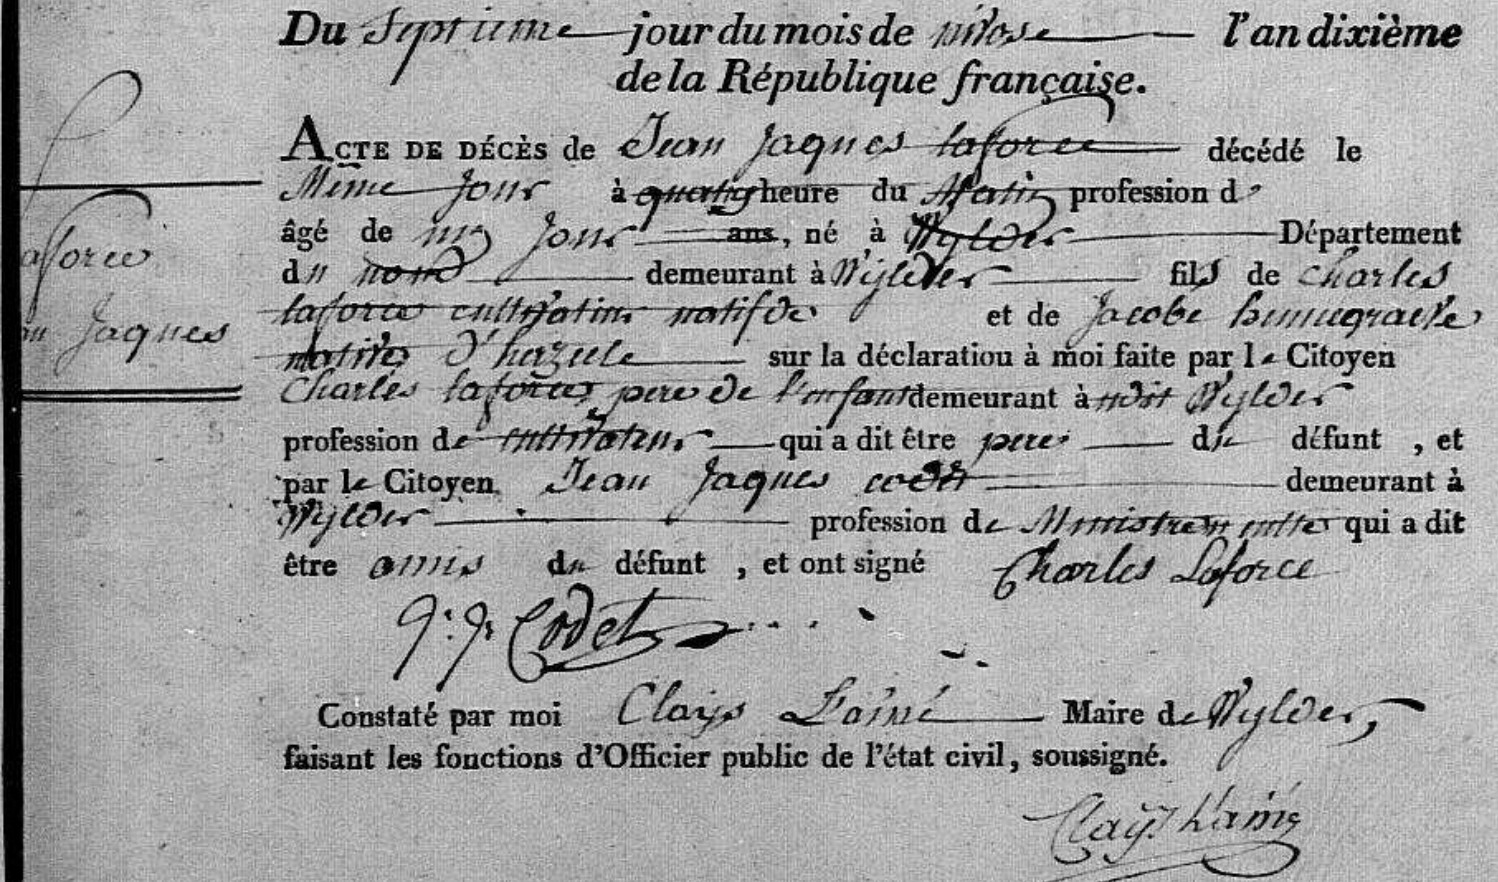 Du Septieme jour du mois de nivose l'an dixième
de la République française.
ACTE DE DÉCÈS de Jean Jaques laforce décédé le
Même Jour à quatre heure du Matin profession d
âgé de un Jour ans, né à Wylder Département
du nord demeurant à Wylder fils de Charles
laforce cultivateur natif de et de Jacobe
native d'hazele sur la déclaration à moi faite par le Citoyen
Charles laforce pere de l'enfant demeurant à udit Wylder
profession de cultivateur qui a dit être pere du défunt , et
par le Citoyen Jean Jaques codet demeurant à
Wylder profession de qui a dit
être amis du défunt , et ont signé Charles Laforce
J. J. Codet
Constaté par moi Clays L'ainé Maire de Wylder,
faisant les fonctions d'Officier public de l'état civil, soussigné.
Clays L'ainé
laforce
Jaques